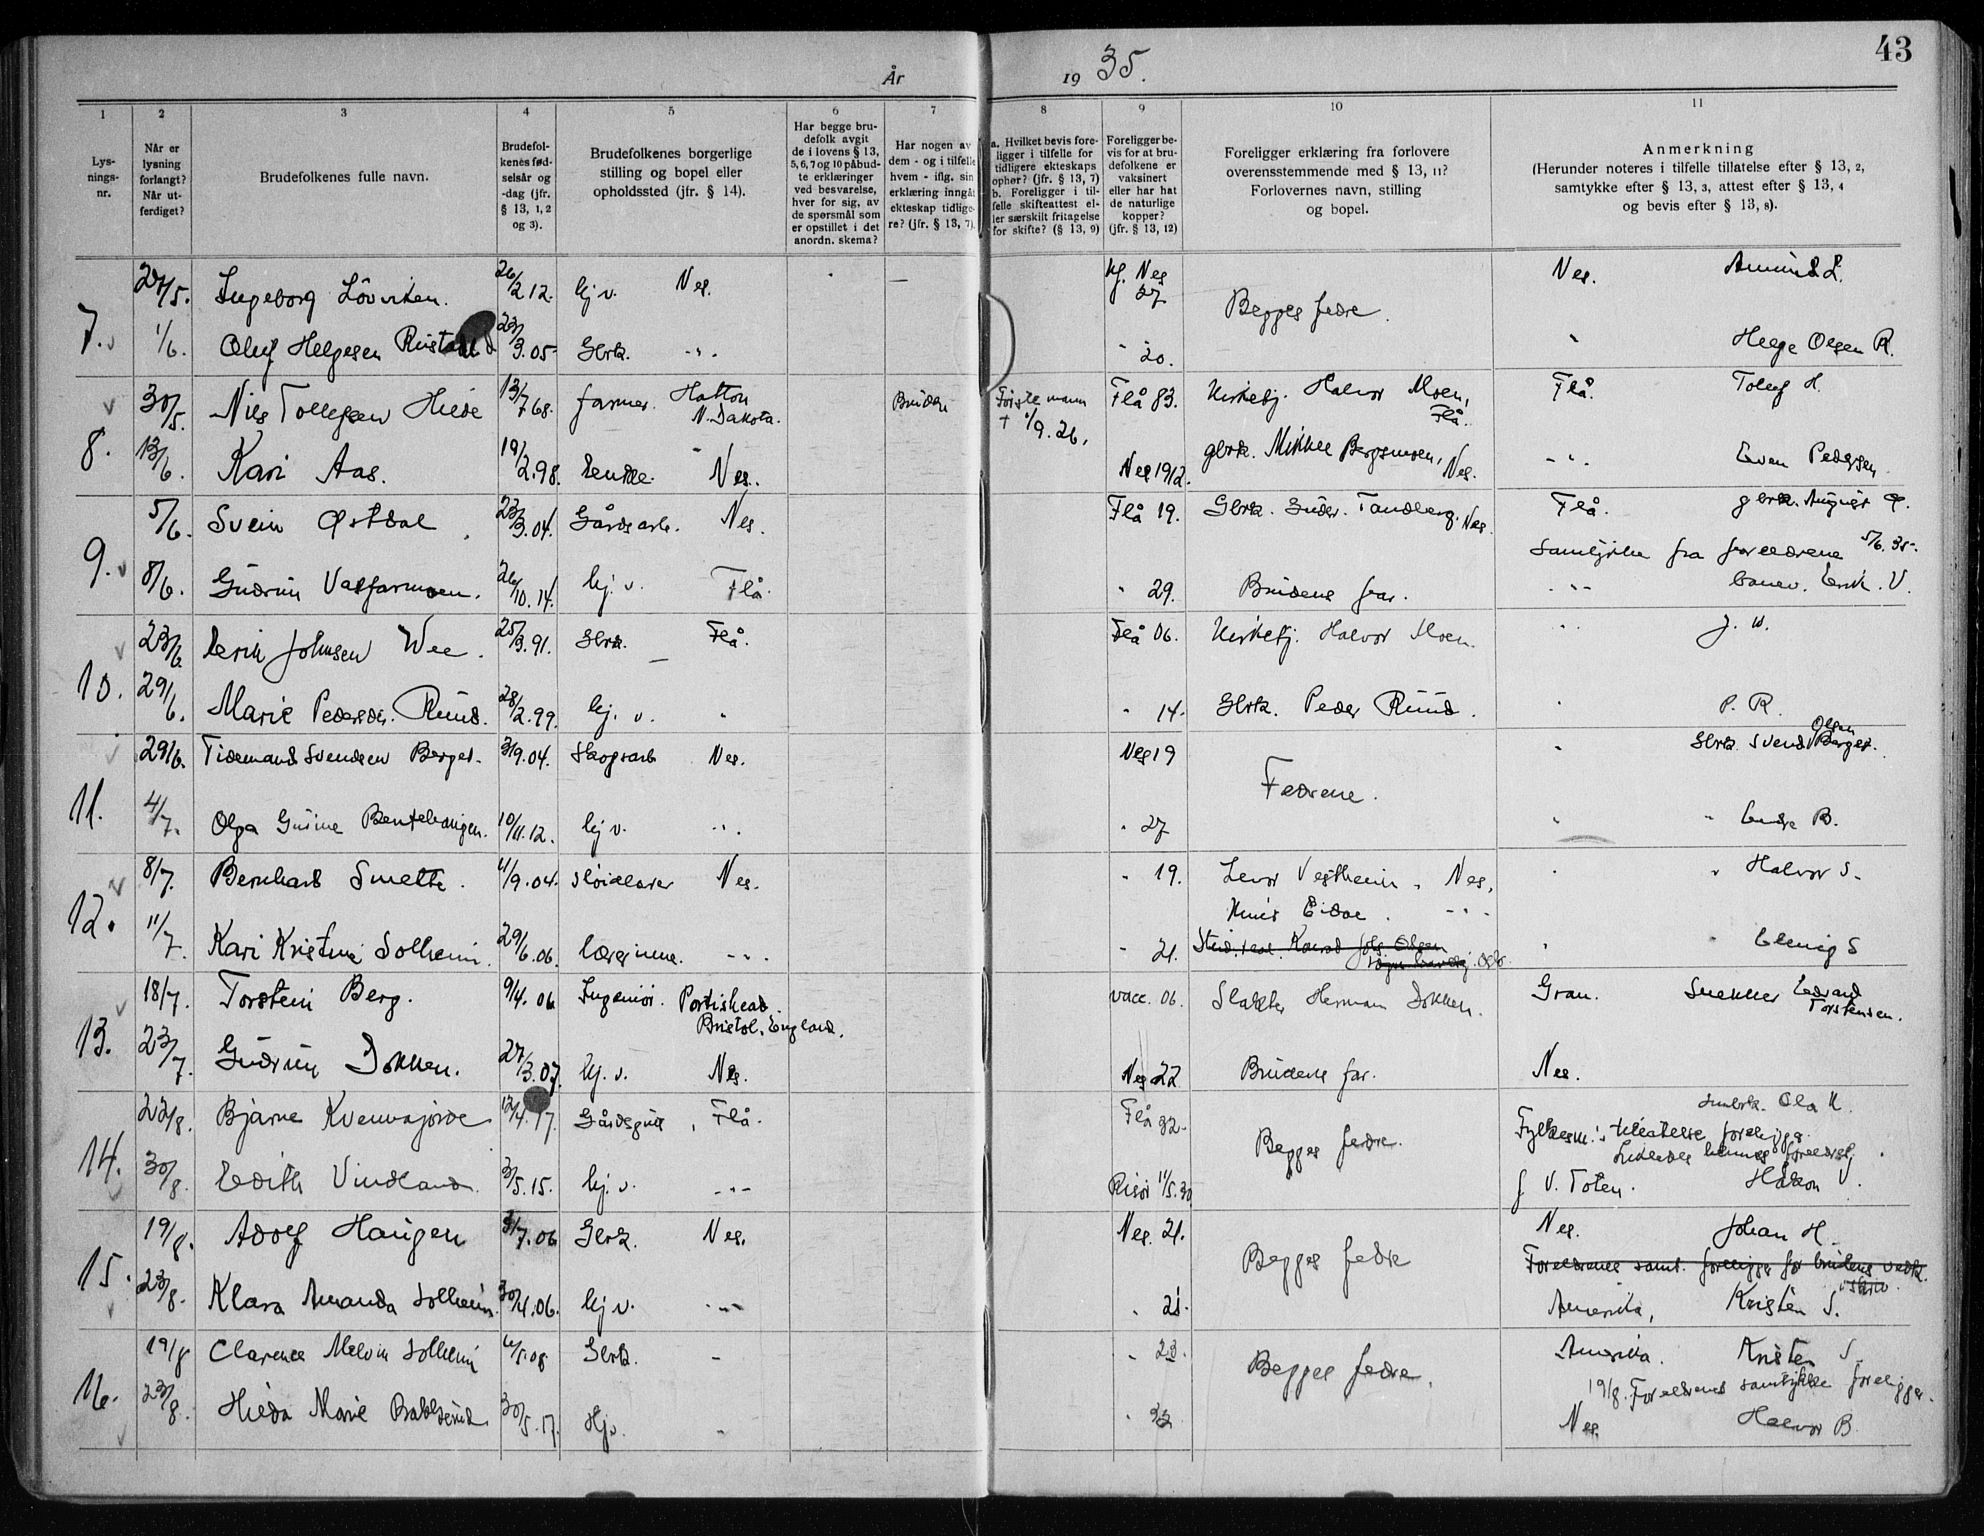 43
År 1935.
1 2 3 4 5 6 7 8 9 10 11
Lys-
nings-
nr.
Når er
lysning
forlangt?
Når ut-
ferdiget?
Brudefolkenes fulle navn.
Brudefol-
kenes fød-
selsår og
-dag (jfr.
§ 13, 1, 2
og 3).
Brudefolkenes borgerlige
stilling og bopel eller
opholdssted (jfr. § 14).
Har begge bru-
defolk avgit
de i lovens § 13,
5, 6, 7 og 10 påbud-
te erklæringer
ved besvarelse,
hver for sig, av
de spørsmål som
er opstillet i det
anordn. skema?
Har nogen av
dem - og i tilfelle
hvem - iflg. sin
erklæring inngåt
ekteskap tidlige-
re? (jfr. § 13, 7).
a. Hvilket bevis fore-
ligger i tilfelle for
tidligere ekteskaps
ophør? (jfr. § 13, 7)
b. Foreligger i til-
felle skifteattest el-
ler særskilt fritagelse
for skifte? (§ 13, 9)
Foreligger be-
vis for at bru-
defolkene er
vaksinert
eller har hat
de naturlige
kopper?
(jfr. § 13, 12)
Foreligger erklæring fra forlovere
overensstemmende med § 13, 11?
Forlovernes navn, stilling
og bopel.
Anmerkning
(Herunder noteres i tilfelle tillatelse efter § 13, 2,
samtykke efter § 13, 3, attest efter § 13, 4
og bevis efter § 13, 8).
7. 27/5. Ingeborg Løvviken. 26/2 12. hj v. Nes. — Nes 27 Begges fedre. Nes. Amund L.
1/6. Oluf Helgesen Rustad 23/3.05 Gbrk. -"- " 20. " Helge Olsen R.
8. 30/5. Nils Tollefsen Hilde 13/7 68. farmer. Hatton N. Dakota. Bruden Første mann † 1/9.26. Flå 83. Kirketj. Halvor Moen, Flå. Flå. Tollef H.
13/6. Kari Aas. 19/2.98. Enke. Nes. Nes 1912. gbrk. Mikkel Bergsmoen, Nes. -"- Even Pedersen
9. 5/6. Svein Østdal 23/3.04. Gårdsarb. Nes. Flå 19. Gbrk. Gudbr. Tandberg. Nes Flå. gbrk. August Ø.
Samtykke fra foreldrene 5/6.35.
8/6. Gudrun Valfarmoen. 26/10.14. hj. v. Flå. " 29. Brudens far. -"- Erik. V.
10. 23/6. Erik Johnsen Wee. 25/3.91. Gbrk. Flå. Flå 06. Kirketj. Halvor Moen. " J. W.
29/6. Marie Pedersdtr. Ruud. 28/2.99. hj. v. " " 14. Gbrk. Peder Ruud. " P. R.
11. 29/6. Tidemand Svendsen Berget. 3/9.04. Skogsarb Nes. Nes 19 Fedrene. " Gbrk. Svend Olsen Berget.
4/7. Olga Gurine Bentehaugen. 10/11.12. hj v. -"- " 27 " " Endre B.
12. 8/7. Bernhard Smette. 4/9.04. sløidlærer Nes. " 19. Levor Vestheim, Nes. " " Halvor S.
Knut Eidal. -"-
11/7. Kari Kristine Solheim. 29/6.06. lærerinne. -"- " 21. Stud. real. Konrad Johs. Olsen " " Elling S
13. 18/7. Torstein Berg. 9/4.06 Ingeniør. Portishead. Bristol, England. vacc. 06. Slakter Herman Dokken. Gran. Snekker Edvard Torstensen.
23/7. Gudrun Dokken. 27/3.07. hj. v. Nes. Nes 22 Brudens far. Nes.
14. 22/8. Bjarne Kvennajorde 12/4.17. Gårdsgutt, Flå. Flå 32. Begges fedre. Smbrk. Ola K.
Fylkesm.'s tillatelse foreligger.
30/8. Edith Vindland. 3/5.15. hj. v. -"- Risør 11/5.30 f V. Toten. Håkon V.
15. 19/8. Adolf Haugen 3/7.06 Gbrk. Nes. Nes. 21. Begges fedre Nes. Johan H.
Foreldrenes samt. foreligger for brudens vedk.
23/8. Klara Amanda Solheim. 30/4.06. hj v. -"- " 21. Amerika, Kristen S.
16. 19/8 Clarence Melvin Solheim 6/5.08 Gbrk. - " 23. Begges fedre. Amerika. Kristen S.
19/8. Foreldrenes samtykke foreligger.
23/8. Hilda Marie Bakkerud 30/5.17. Hj v. " " 32 Nes. Halvor B.